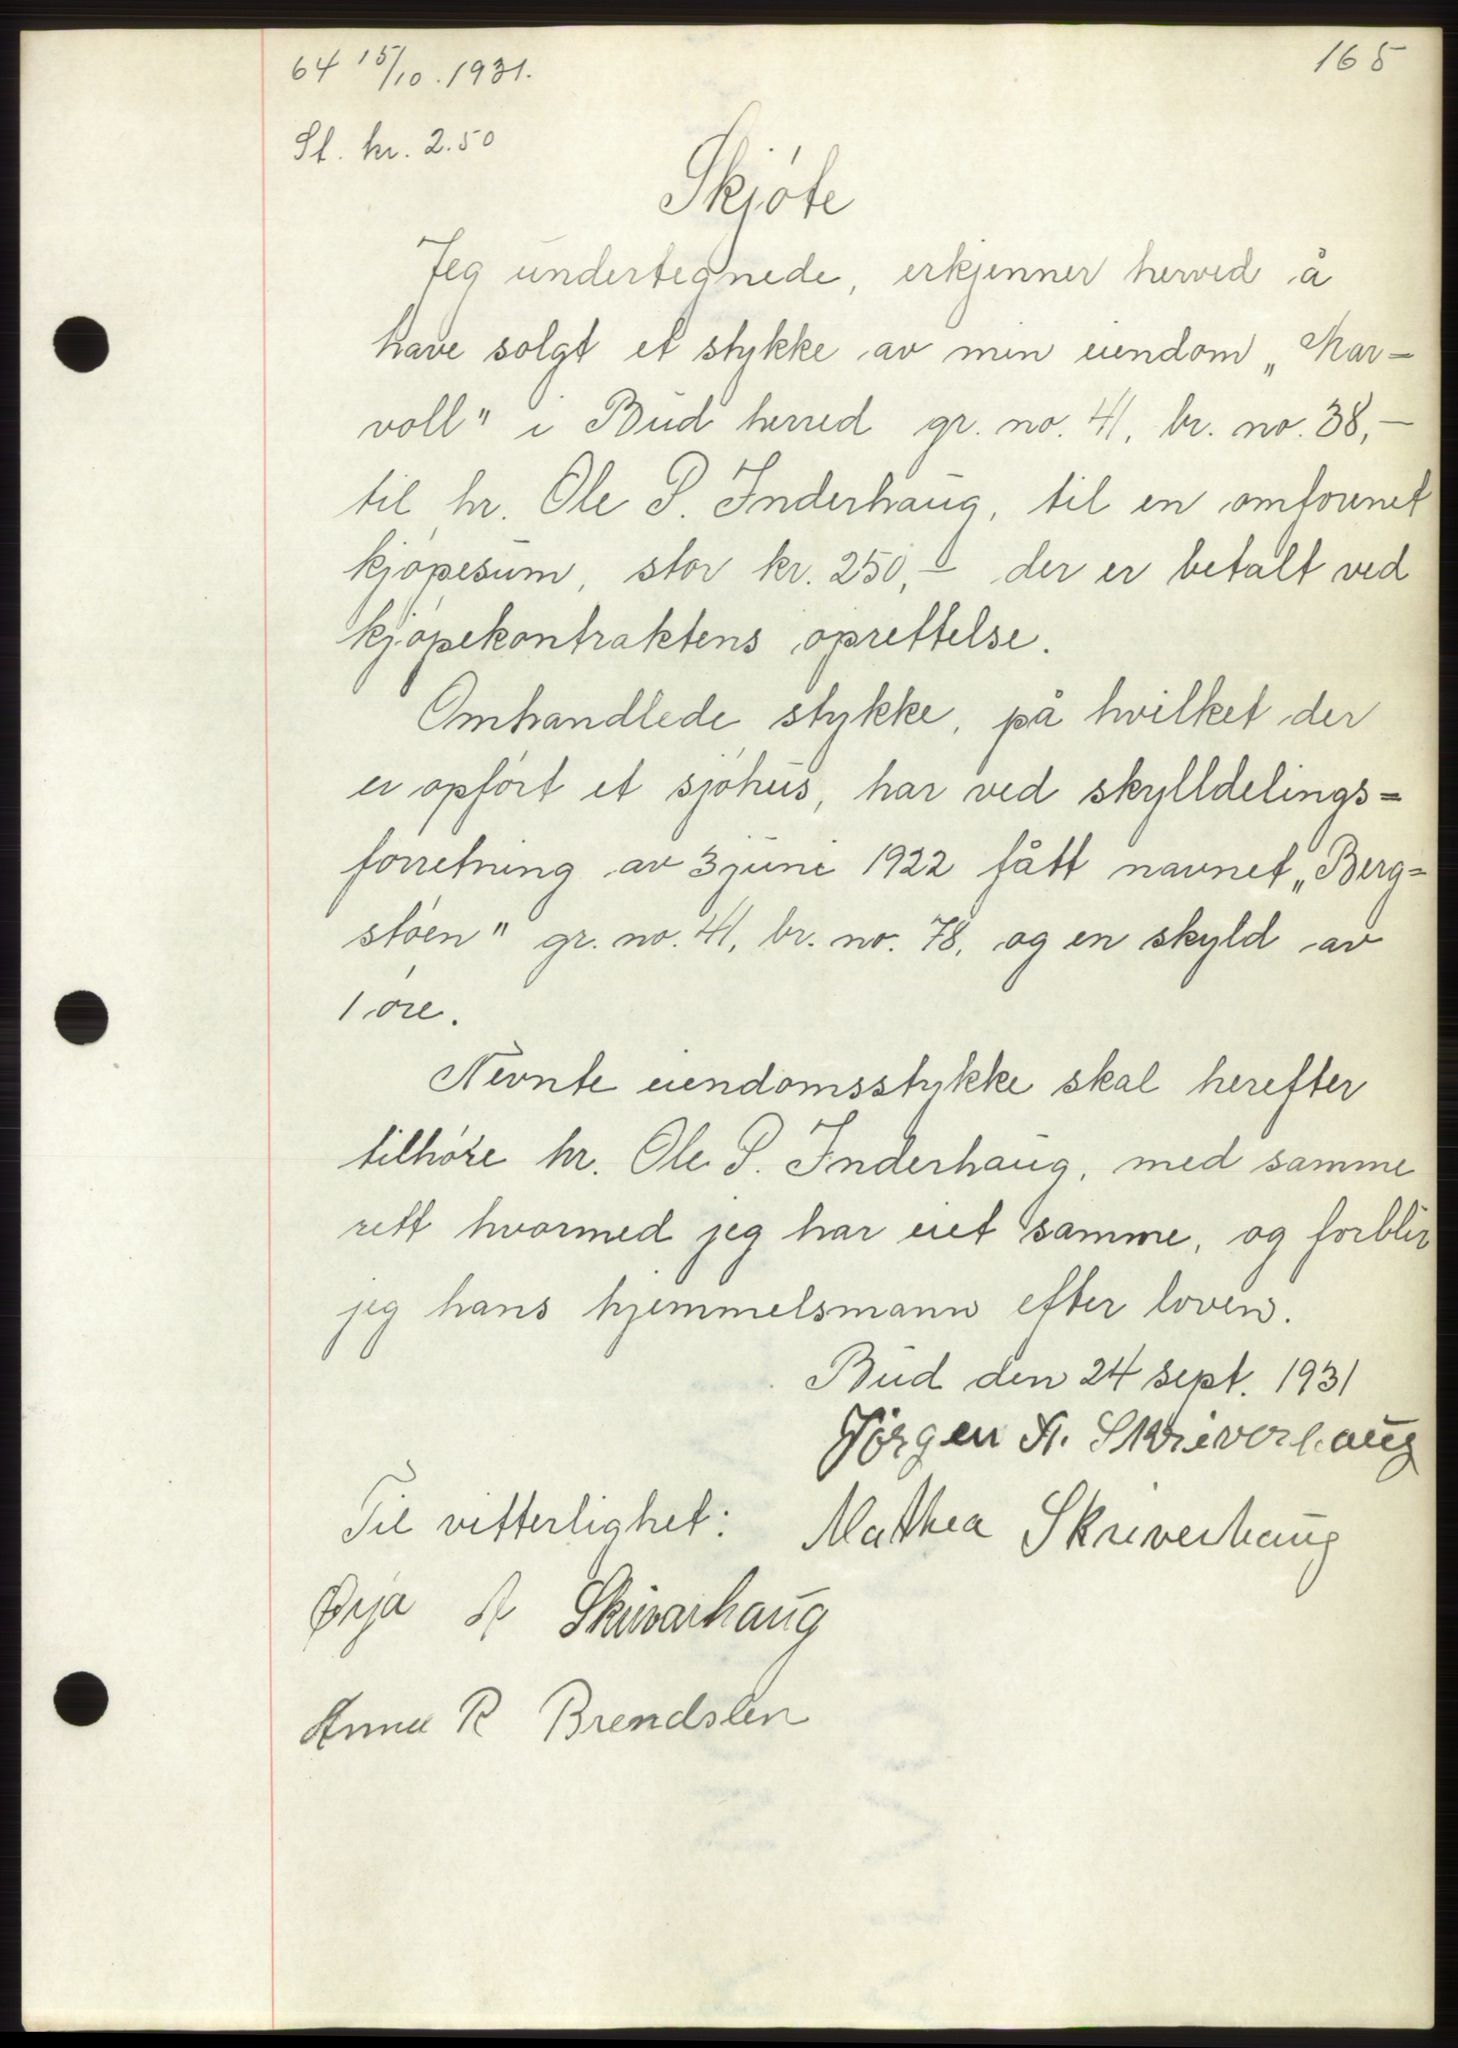 64 15/10. 1931.
165
St. kr. 2.50
Skjöte
Jeg undertegnede, erkjenner herved å
have solgt et stykke av min eiendom „Mar-
voll" i Bud herred gr. no. 41, br. no. 38,-
til hr. Ole P. Inderhaug, til en omforenet
kjöpesum, stor kr. 250,- der er betalt ved
kjöpekontraktens oprettelse.
Omhandlede stykke, på hvilket der
er opfört et sjöhus, har ved skylldelings=
forretning av 3 juni 1922 fått navnet „Berg=
stöen" gr. no. 41, br. no. 78, og en skyld av
1 öre.
Nevnte eiendomsstykke skal herefter
tilhöre hr. Ole P. Inderhaug, med samme
rett hvormed jeg har eiet samme, og forblir
jeg hans hjemmelsmann efter loven.
Bud den 24 sept. 1931
Jörgen A. Skriverhaug
Til vitterlighet:
Mathea Skriverhaug
A Skrivarhaug
Anna R Brendsten